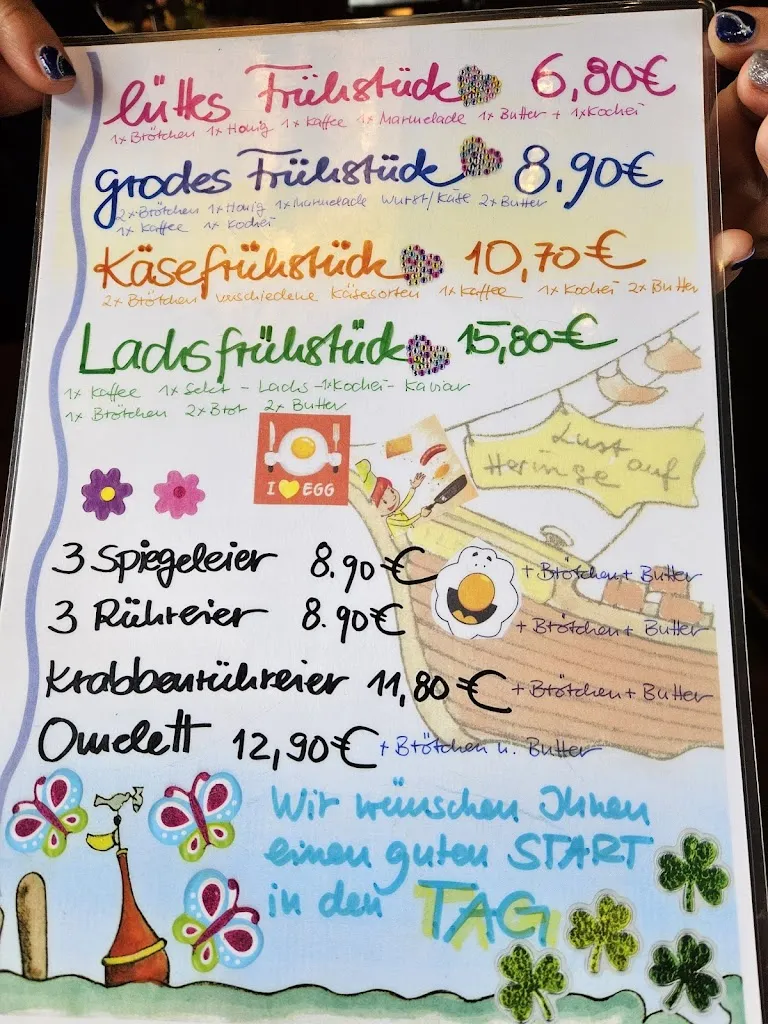 lüttes Frühstück 6,80€
1x Brötchen 1x Honig 1x Kaffee 1x Marmelade 1x Butter + 1x Kochei
grodes Frühstück 8.90€
2x Brötchen 1x Honig 1x Marmelade Wurst/Käse 2x Butter
1x Kaffee 1x Kochei
Käsefrühstück 10,70€
2x Brötchen verschiedene Käsesorten 1x Kaffee 1x Kochei 2x Butter
Lachsfrühstück 15,80€
1x Kaffee 1x Sekt - Lachs - 1x Kochei - Kaviar
1x Brötchen 2x Brot 2x Butter
I EGG
Lust auf
Heringe
3 Spiegeleier 8.90€ + Brötchen + Butter
3 Rühreier 8.90€ + Brötchen + Butter
Krabbenrühreier 11,80€ + Brötchen + Butter
Omelett 12,90€ + Brötchen u. Butter
Wir wünschen Ihnen
einen guten START
in den TAG